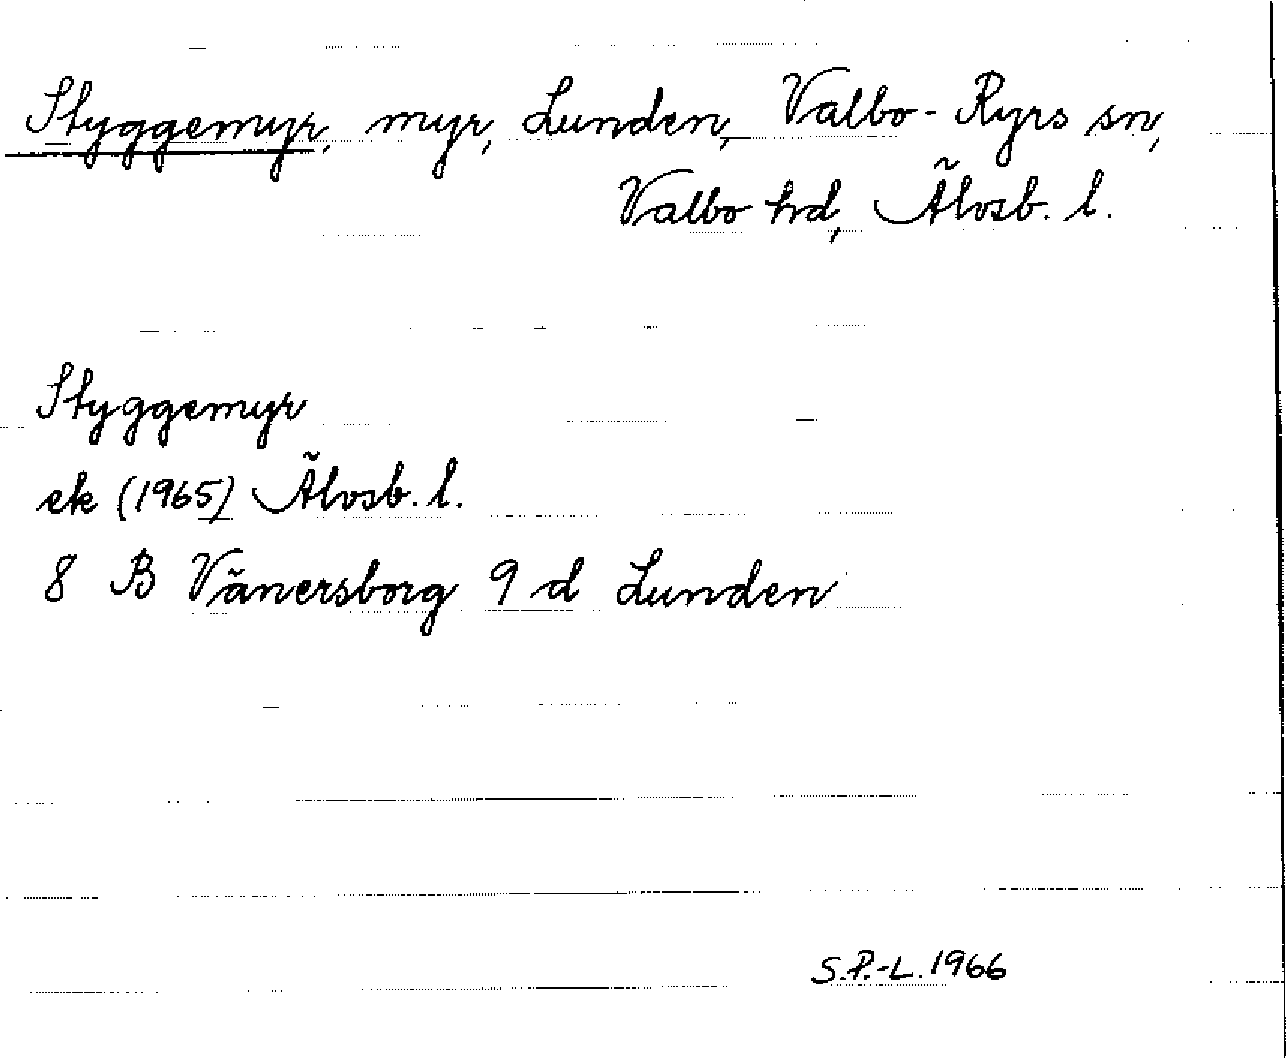 Styggemyr, myr, Lunden, Valbo-Ryrs sn,
Valbo hd, Älvsb. l.
Styggemyr
ek (1965) Älvsb. l.
8 B Vänersborg 9 d Lunden
S.P.-L. 1966